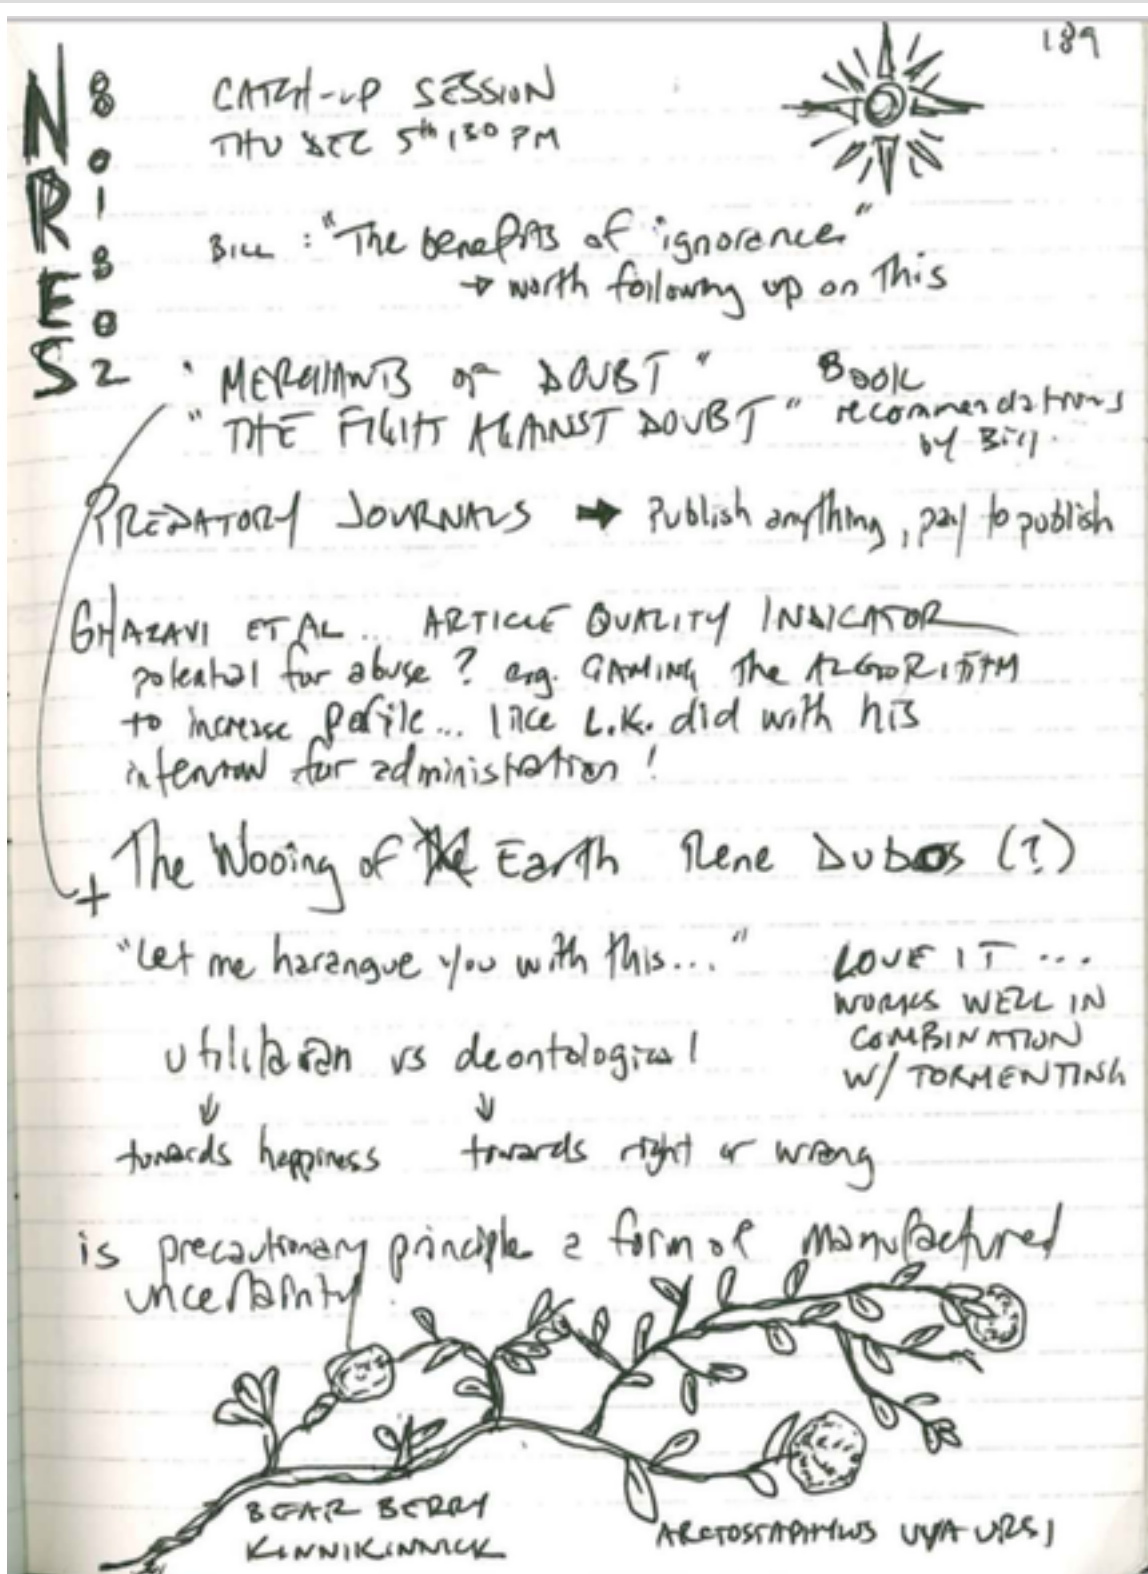 189
NRES
8
8
0
1
8
0
2
CATCH-UP SESSION
THU DEC 5th 130 PM
BILL : "The benefits of ignorance"
→ worth following up on this
"MERCHANTS OF DOUBT"
"THE FIGHT AGAINST DOUBT"
Book
recommendations
by Bill.
PREDATORY JOURNALS → Publish anything, pay to publish
GHAZAVI ET AL... ARTICLE QUALITY INDICATOR
potential for abuse? e.g. GAMING The ALGORITHM
to increase profile... like L.K. did with his
interview for administration!
+ The Wooing of The Earth Rene Dubos (?)
"Let me harangue you with this..."
LOVE IT...
WORKS WELL IN
COMBINATION
W/ TORMENTING
utilitarian vs deontological
↓ ↓
towards happiness towards right or wrong
is precautionary principle a form of manufactured
uncertainty
BEAR BERRY
KINNIKINNICK
ARCTOSTAPHYLUS UVA URSI